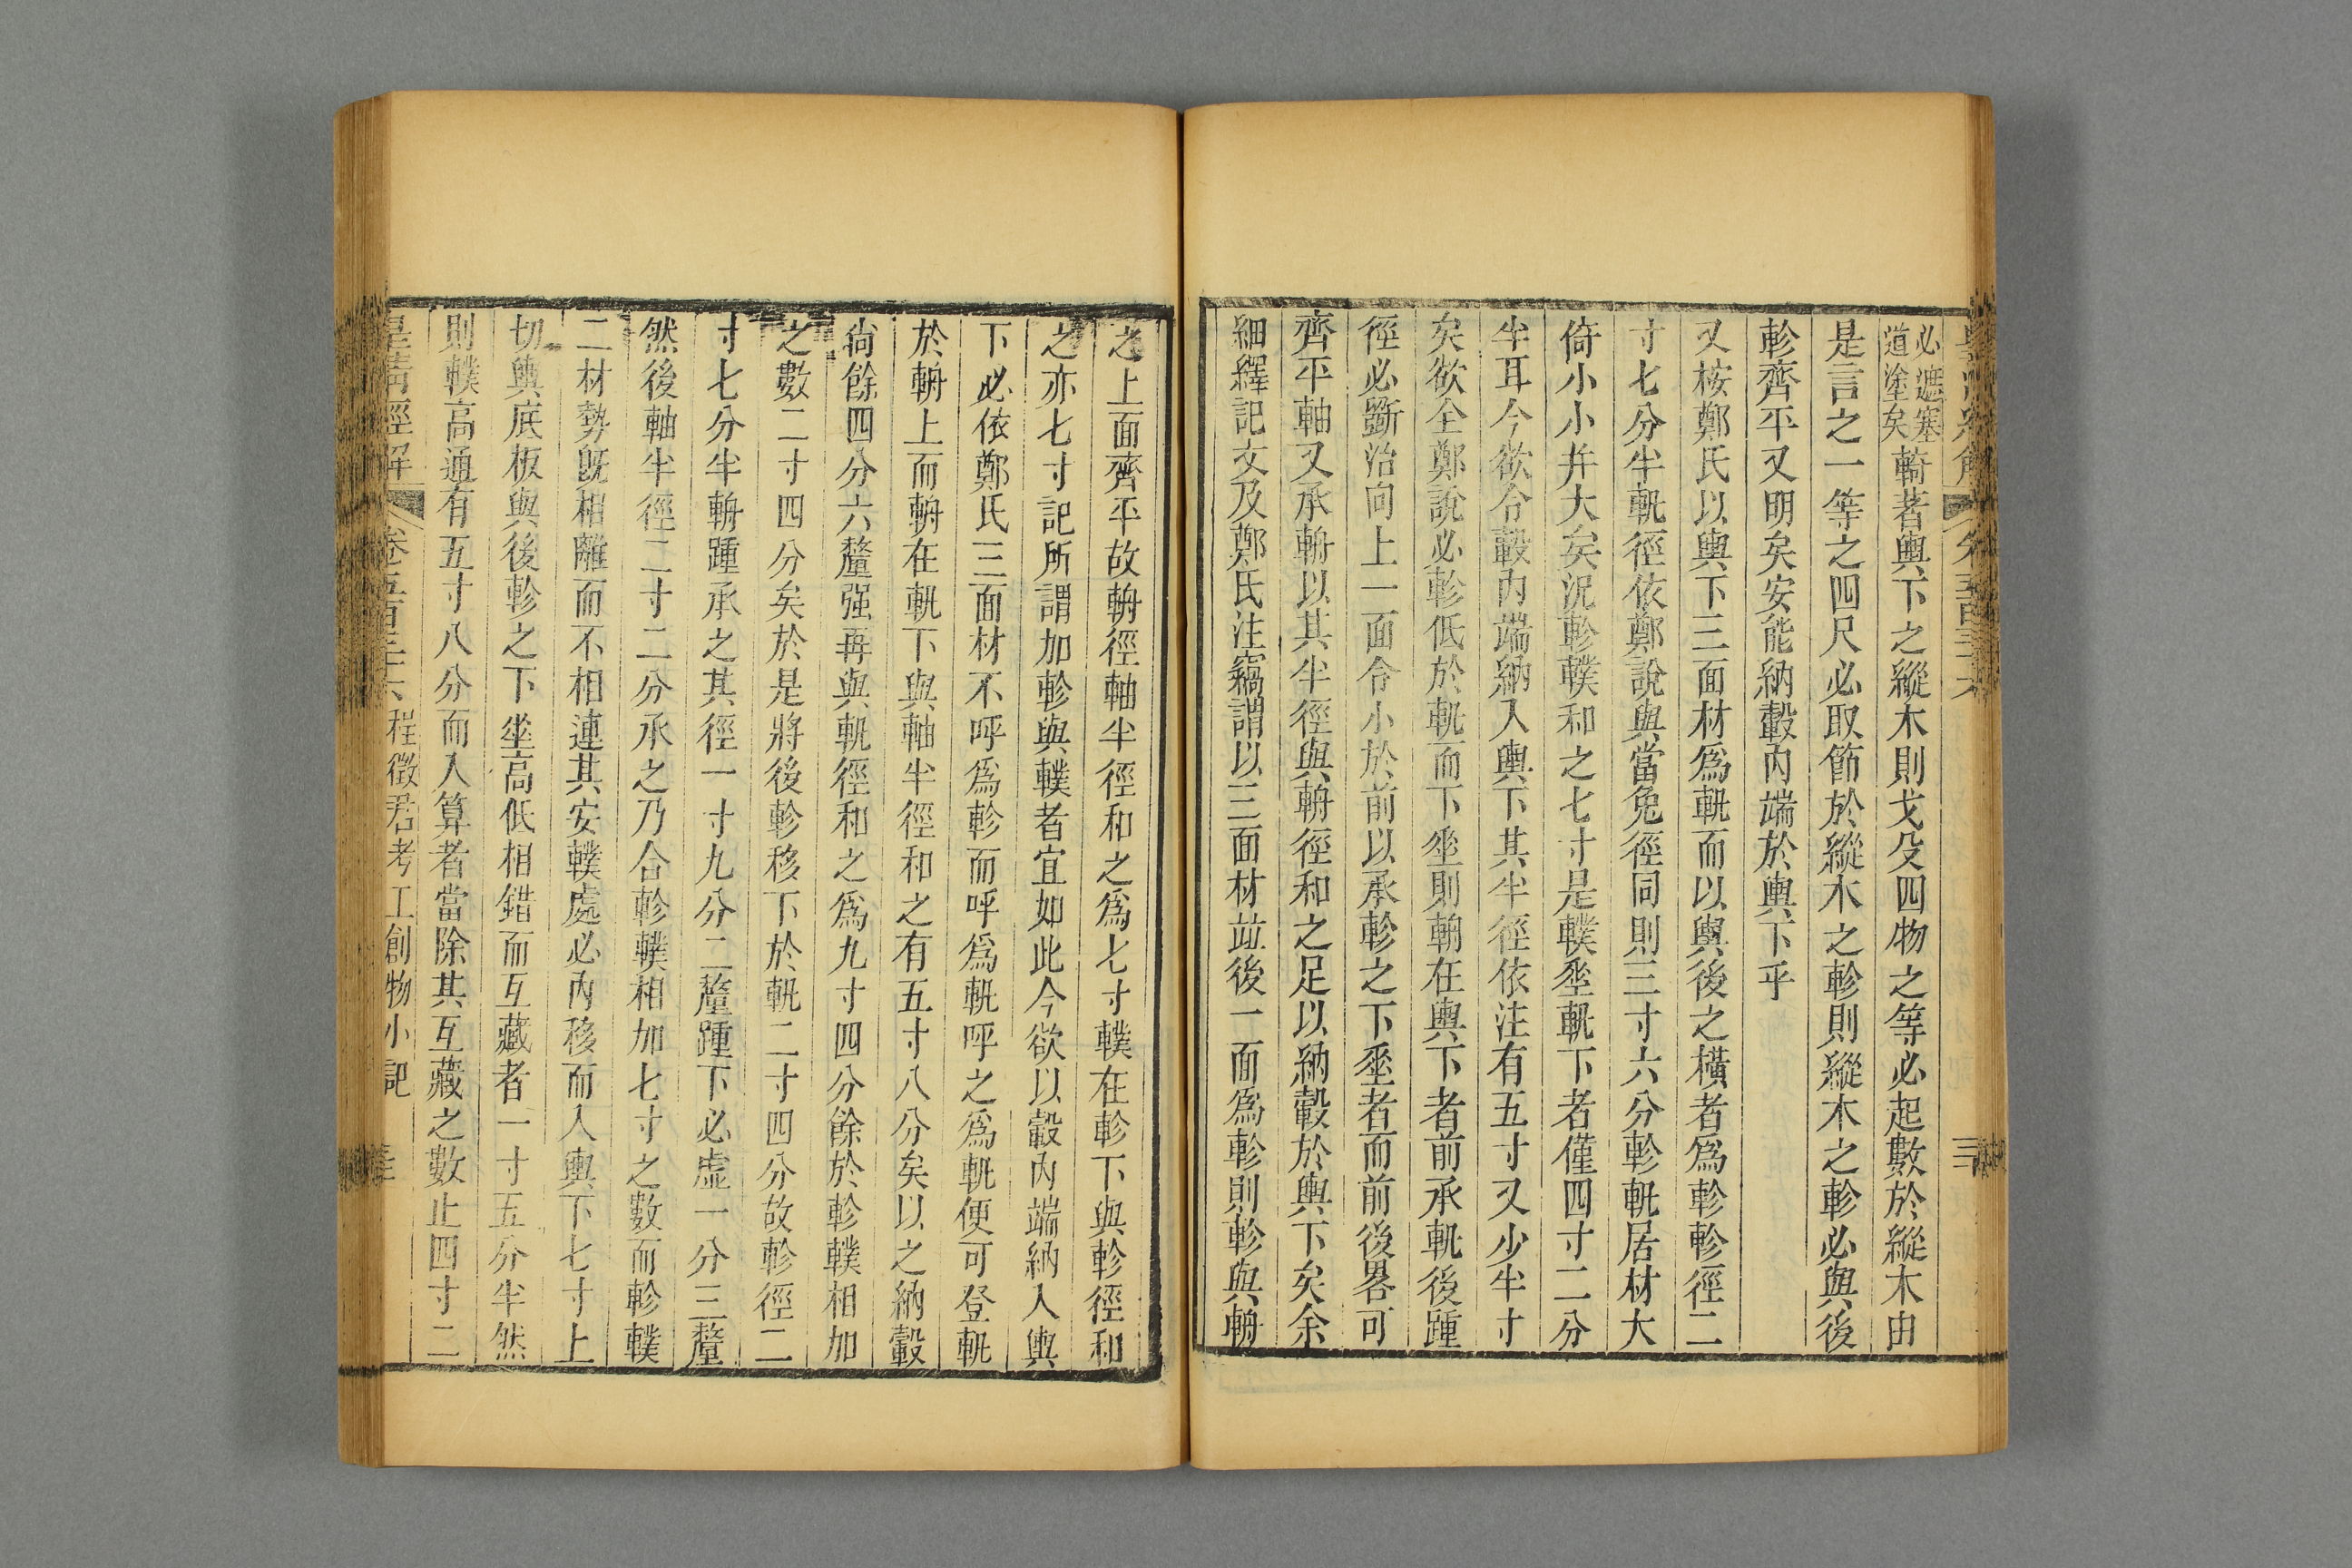 必遮塞道塗矣輢著輿下之縱木則戈殳四物之等必起數於縱木由
是言之一等之四尺必取節於縱木之軫則縱木之軫必與後
軫齊平又明矣安能納轂內端於輿下乎
又桉鄭氏以輿下三面材爲軓而以輿後之橫者爲軫軫徑二
寸七分半軓徑依鄭說與當兔徑同則三寸六分軫軓居材大
倚小小并大矣況軫轐和之七寸是轐坙軓下者僅四寸二分
半耳今欲合轂內端納入輿下其半徑依注有五寸又少半寸
矣欲全鄭說必軫低於軓而下坐則輈在輿下者前承軓後踵
徑必斵治向上一面令小於前以承軫之下坙者而前後畧可
齊平軸又承輈以其半徑與輈徑和之足以納轂於輿下矣余
細繹記文及鄭氏注竊謂以三面材竝後一面爲軫則軫與輈
之上面齊平故輈徑軸半徑和之爲七寸轐在軫下與軫徑和
之亦七寸記所謂加軫與轐者宜如此今欲以轂內端納入輿
下必依鄭氏三面材不呼爲軫而呼爲軓呼之爲軓便可登軓
於輈上而輈在軓下與軸半徑和之有五寸八分矣以之納轂
尙餘四分六釐强再與軓徑和之爲九寸四分餘於軫轐相加
之數二寸四分矣於是將後軫移下於軓二寸四分故軫徑二
寸七分半輈踵承之其徑一寸九分二釐踵下必虛一分三釐
然後軸半徑二寸二分承之乃合軫轐相加七寸之數而軫轐
二材勢旣相離而不相連其安轐處必內移而入輿下七寸上
切輿底板與後軫之下坐高低相錯而互藏者一寸五分半然
則轐高通有五寸八分而入算者當除其互藏之數止四寸二
皇淸經解 卷五百三十六 程徵君考工創物小記